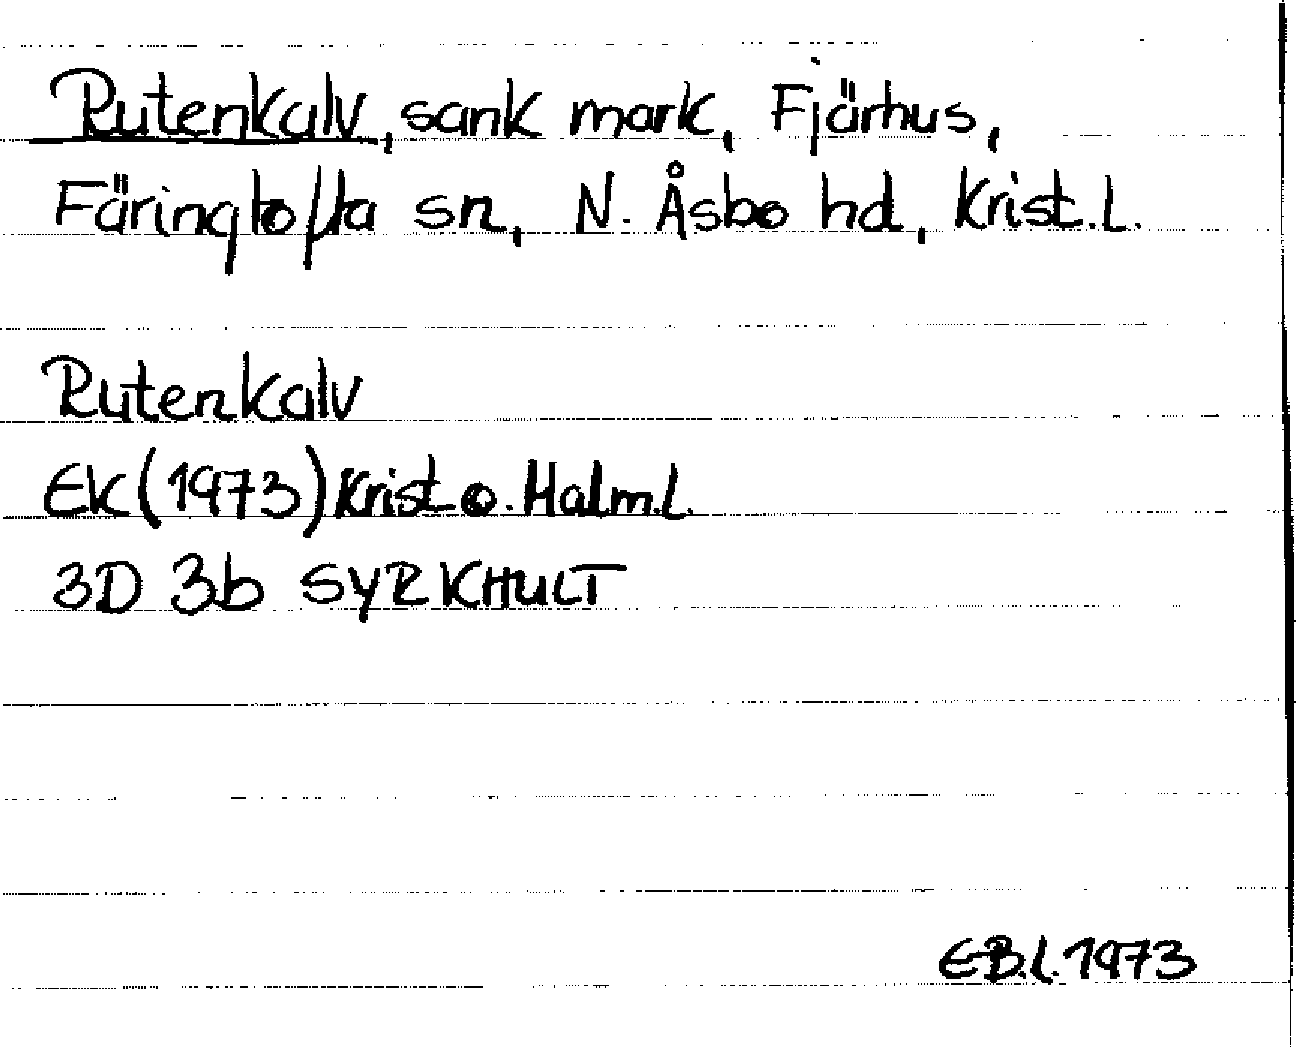 Rutenkalv, sank mark, Fjärhus,
Färingtofta sn, N. Åsbo hd, Krist.L.
Rutenkalv
EK (1973) Krist.o.Halm.L.
3D 3b SYRKHULT
E.B.L. 1973